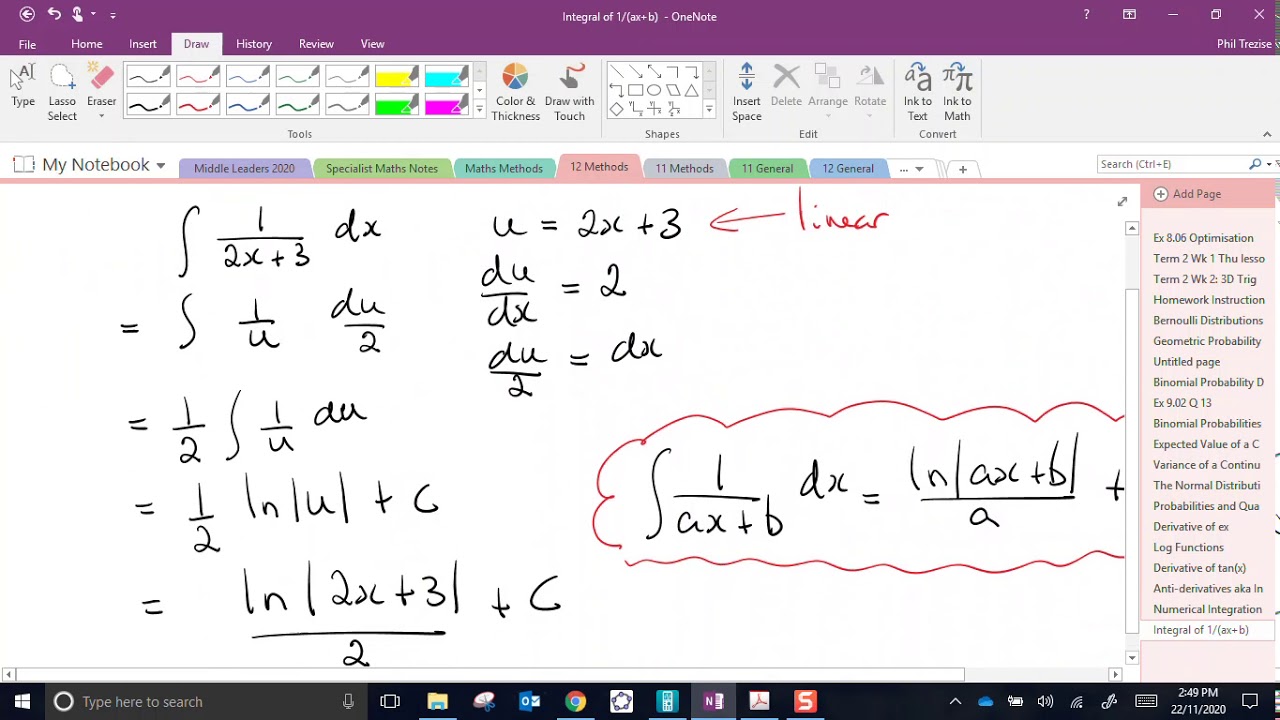 Integral of 1/(ax+b) - OneNote
Phil Trezise
File Home Insert Draw History Review View
Type Lasso Select Eraser Color & Thickness Draw with Touch Insert Space Delete Arrange Rotate Ink to Text Ink to Math
Tools Shapes Edit Convert
My Notebook Middle Leaders 2020 Specialist Maths Notes Maths Methods 12 Methods 11 Methods 11 General 12 General ... + Search (Ctrl+E)
Add Page
∫ 1/(2x+3) dx u = 2x+3 ← linear
du/dx = 2
= ∫ 1/u du/2
du/2 = dx
= 1/2 ∫ 1/u du
∫ 1/(ax+b) dx = ln|ax+b|/a +
= 1/2 ln|u| + C
= ln|2x+3|/2 + C
Ex 8.06 Optimisation
Term 2 Wk 1 Thu lesso
Term 2 Wk 2: 3D Trig
Homework Instruction
Bernoulli Distributions
Geometric Probability
Untitled page
Binomial Probability D
Ex 9.02 Q 13
Binomial Probabilities
Expected Value of a C
Variance of a Continu
The Normal Distributi
Probabilities and Qua
Derivative of ex
Log Functions
Derivative of tan(x)
Anti-derivatives aka In
Numerical Integration
Integral of 1/(ax+b)
Type here to search
2:49 PM
22/11/2020